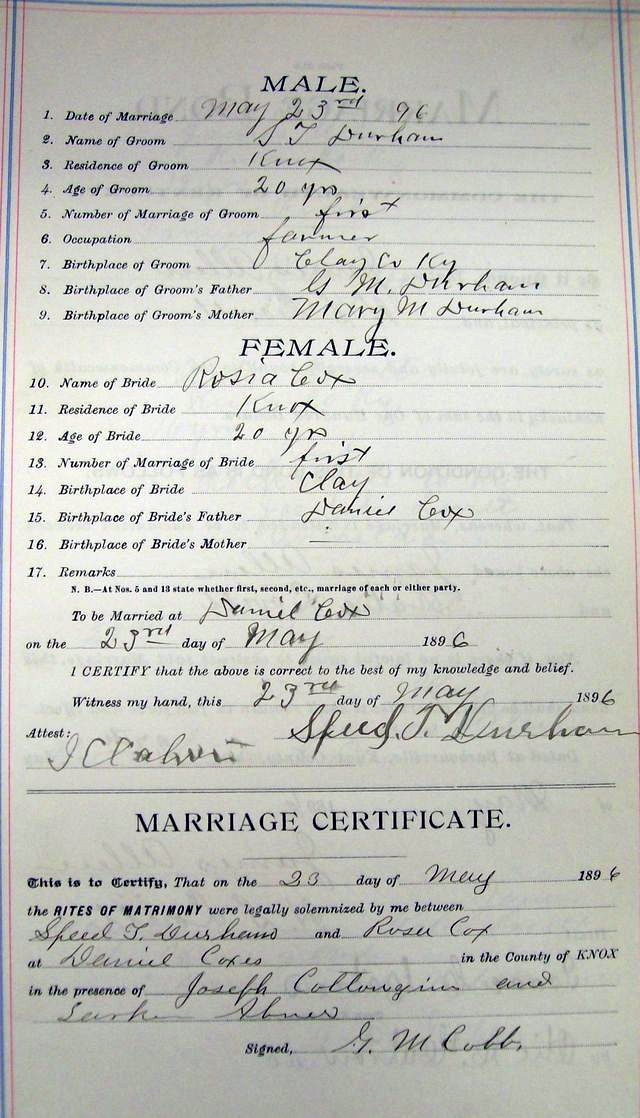 MALE.
1. Date of Marriage May 23rd 96
2. Name of Groom S T Durham
3. Residence of Groom Knox
4. Age of Groom 20 yrs
5. Number of Marriage of Groom first
6. Occupation farmer
7. Birthplace of Groom Clay Co Ky
8. Birthplace of Groom's Father G M. Durham
9. Birthplace of Groom's Mother Mary M Durham
FEMALE.
10. Name of Bride Rosia Cox
11. Residence of Bride Knox
12. Age of Bride 20 yrs
13. Number of Marriage of Bride first
14. Birthplace of Bride Clay
15. Birthplace of Bride's Father Daniel Cox
16. Birthplace of Bride's Mother —
17. Remarks
N. B.—At Nos. 5 and 13 state whether first, second, etc., marriage of each or either party.
To be Married at Daniel Cox
on the 23rd day of May 1896
I CERTIFY that the above is correct to the best of my knowledge and belief.
Witness my hand, this 23rd day of May 1896
Speed. T. Durham
Attest:
MARRIAGE CERTIFICATE.
This is to Certify, That on the 23 day of May 1896
the RITES OF MATRIMONY were legally solemnized by me between
Speed T. Durham and Rosa Cox
at Daniel Coxes in the County of KNOX
in the presence of Joseph Cottongim and
Abner
Signed, G. M Cobb.